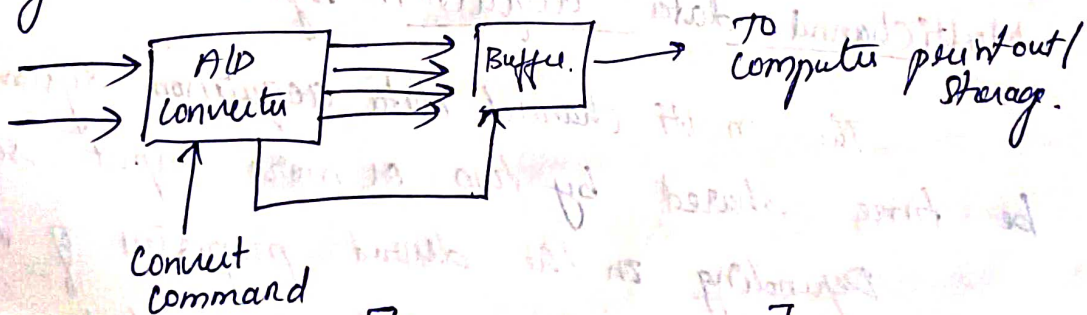 A/D
Converter
Buffer.
To
computer printout/
storage.
Convert
command